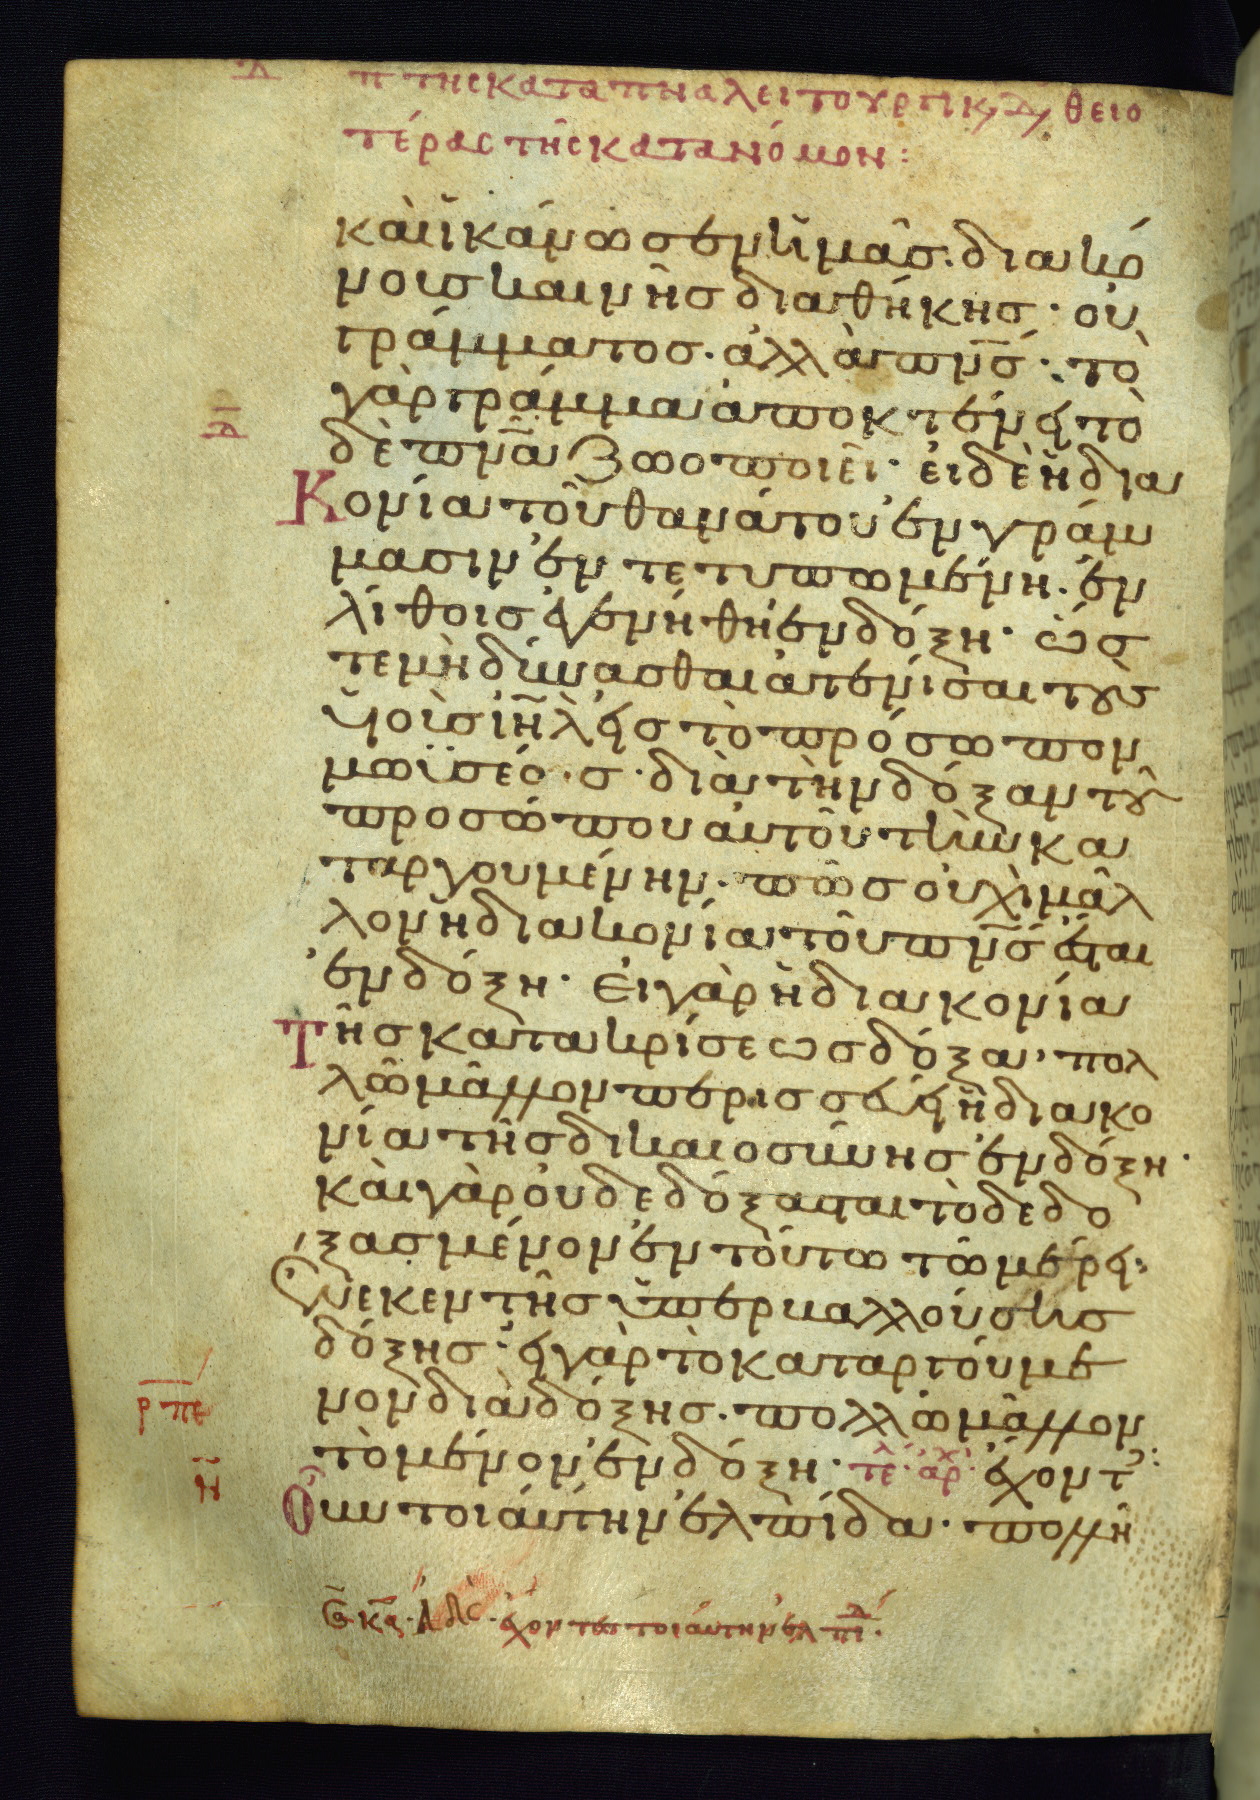 Δ
π της κατα πνα λειτουργικ, Δ, θειο
τέρας τῆς κατα νόμον:
καὶ ἱκάνωσεν ἡμᾶσ. διακό
νουσ καινῆσ διαθήκησ· ου
γράμματοσ. ἀλλὰ πνσ· τὸ
γὰρ γράμμα ἀποκτένει τὸ
Δ
δὲ πνα ζωοποιεῖ· εἰ δὲ ἡ δια
Κονία τοῦ θανάτου ἐν γράμ
μασιν ἐντετυπωμένη. ἐν
λίθοισ ἐγενήθη ἐν δόξη· ὥσ
τε μὴ δύνασθαι ἀτενίσαι τοὺσ
υἱοὺσ ιηλ εἰσ τὸ πρόσωπον
μωϋσέοσ. διὰ τὴν δόξαν τοῦ
προσώπου αὐτοῦ τὴν κα
ταργουμένην. πῶσ οὐχὶ μᾶλ
λον ἡ διακονία τοῦ πνσ ἔσται
ἐν δόξη· Εἰ γὰρ ἡ διακονία
Τῆσ κατακρίσεωσ δόξα, πολ
λῶ μᾶλλον περισσεύει ἡ διακο
νία τῆσ δικαιοσύνησ ἐν δόξη·
καὶ γὰρ οὐ δεδόξασται τὸ δεδο
ξασμένον ἐν τούτω τῶ μέρει·
Εἵνεκεν τῆσ ὑπερβαλλούσησ
δόξησ· εἰ γὰρ τὸ καταργούμε
ρπε
νον διὰ δόξησ. πολλῶ μᾶλλον
τὸ μένον ἐν δόξη· τε· ἀρχ· ἔχοντ:
η
Οὖν τοιάυτην ἐλπίδα. πολλῆ
κε· Ἀδελ. ἔχοντεσ τοιάυτην ἐλπίδ.